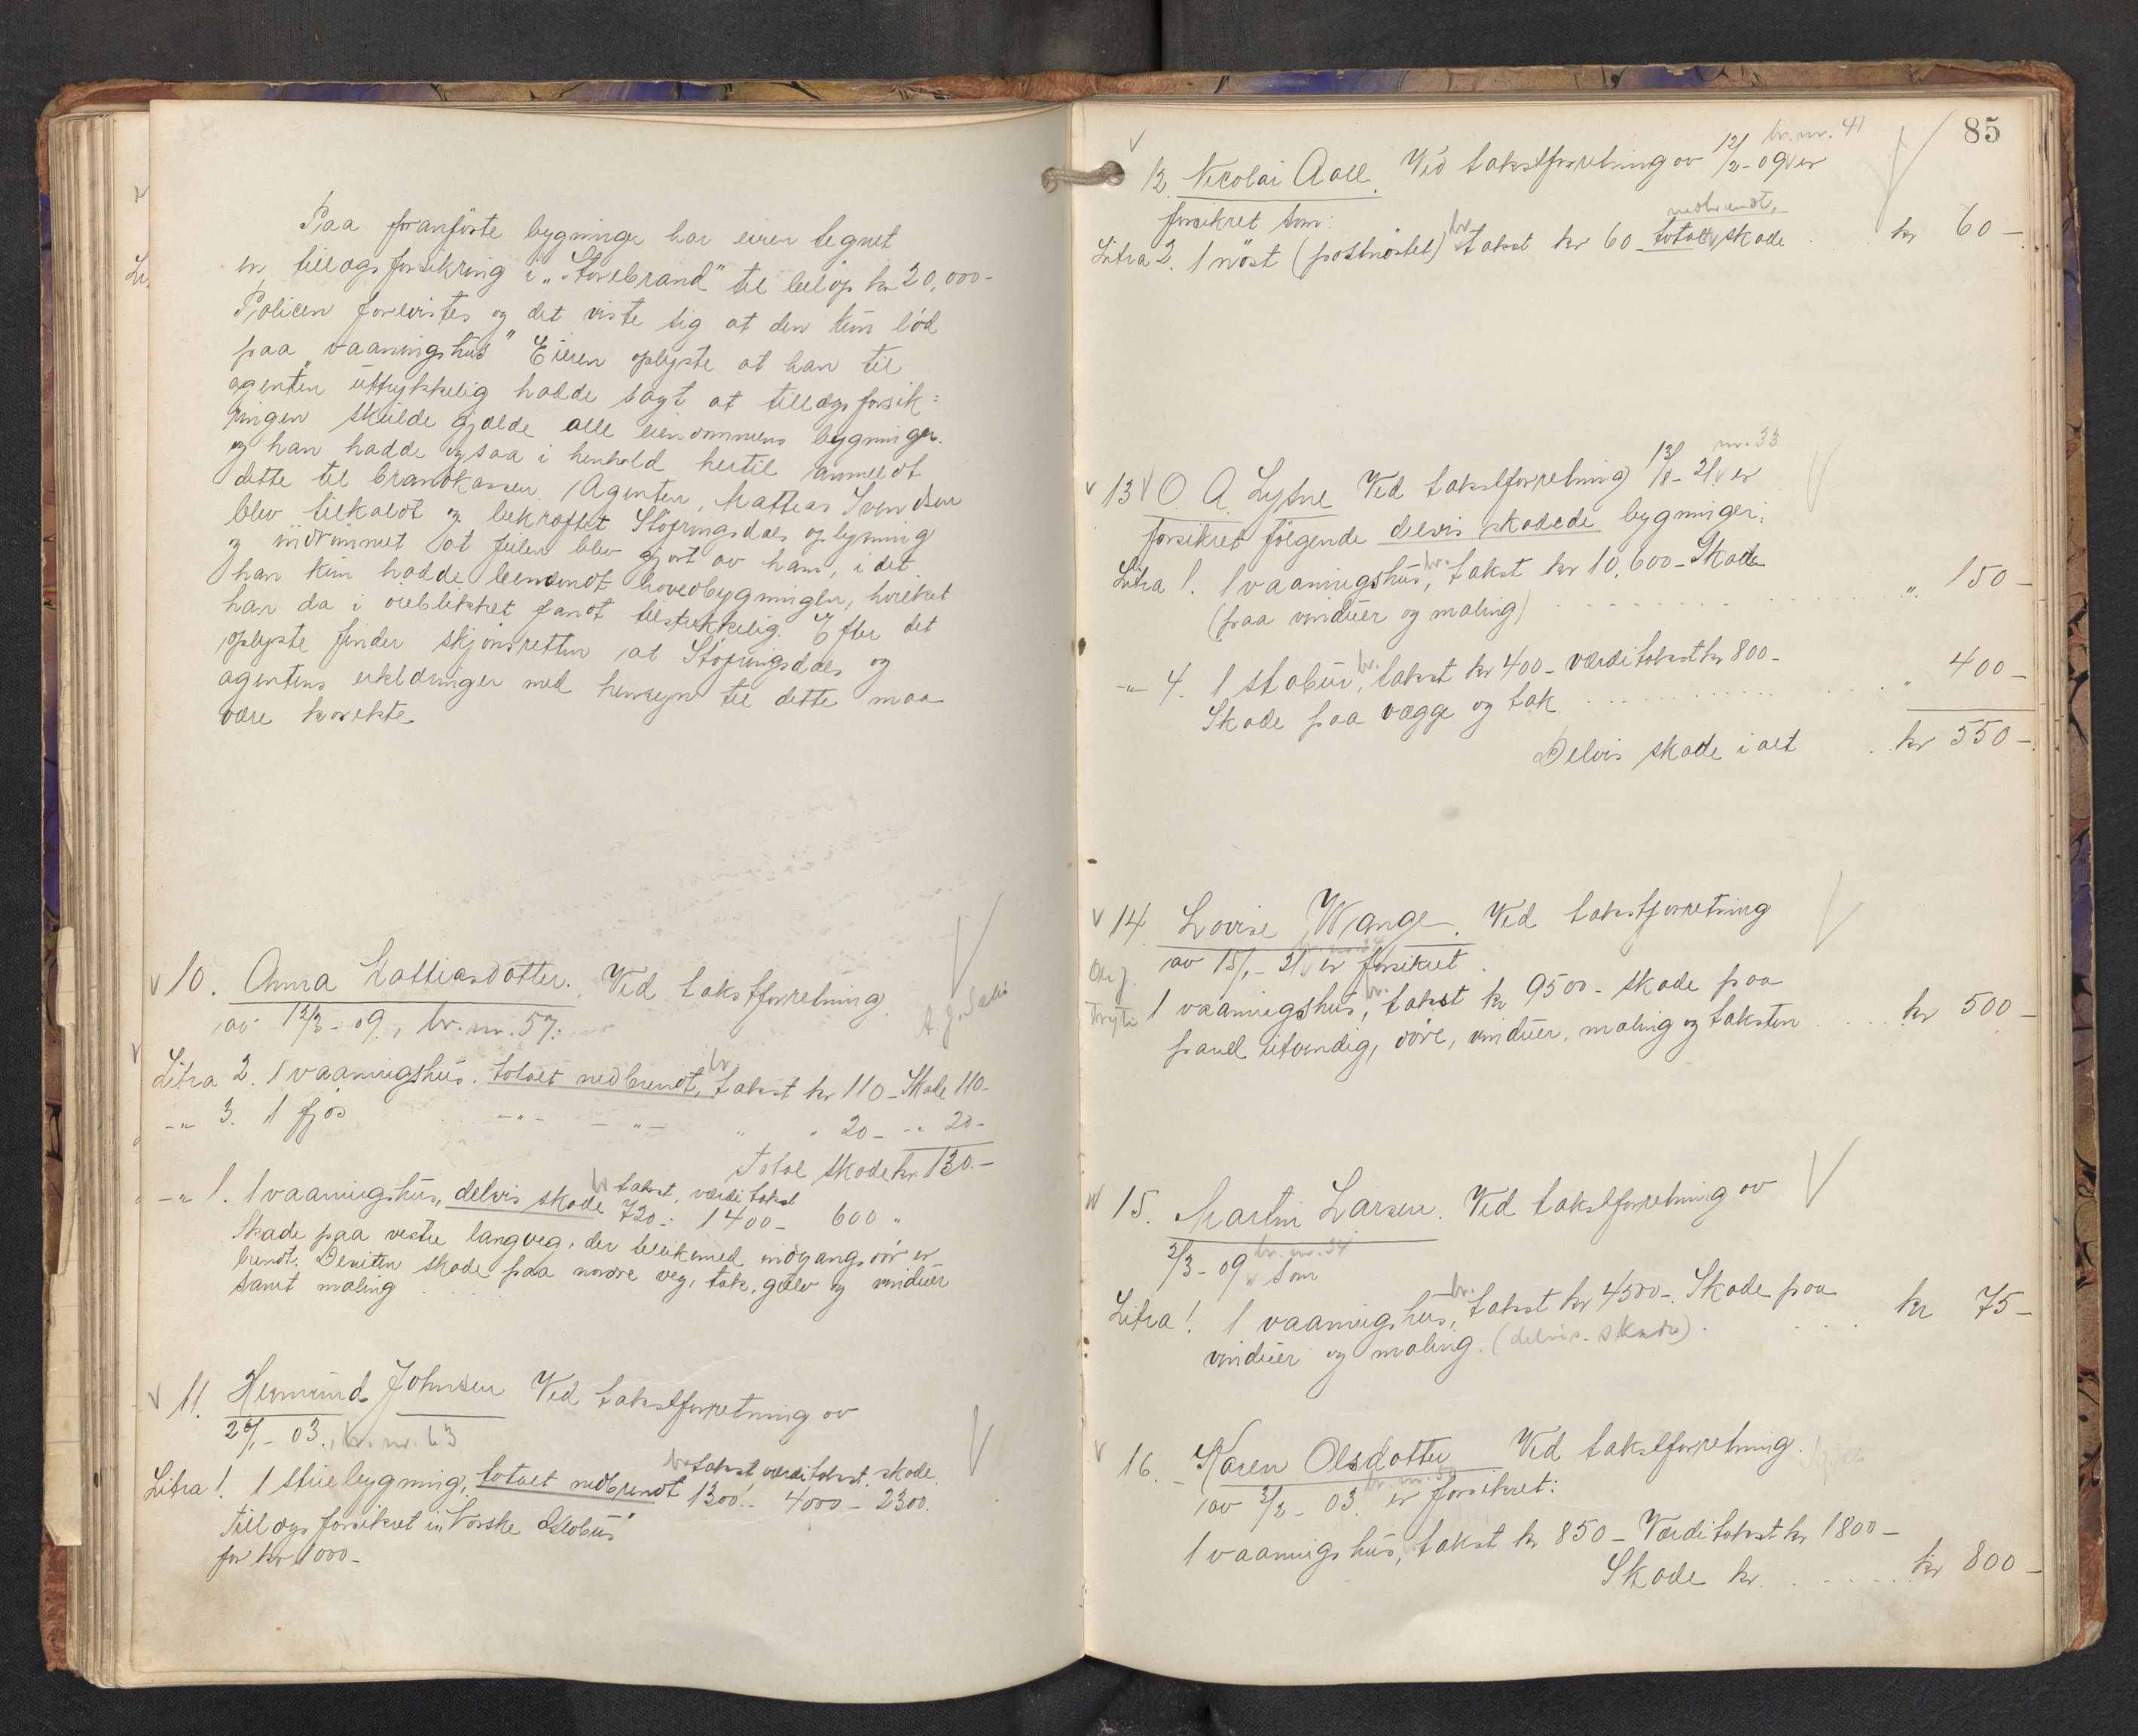 Paa foranførte bygninger har eieren tegnet
en tillægsforsikring i „Storebrand" til beløp kr 20,000-
Policen forevistes og det viste sig at den kun lød
paa „vaaningshus" Eieren oplyste at han til
agenten uttrykkelig hadde sagt at tillægsforsik=
ringen skulde gjælde alle eiendommens bygninger.
og han hadde ogsaa i henhold hertil anmeldt
dette til brandkassen. Agenten, Mattias Svendsen
blev tilkaldt og bekræftet Støfringsdals oplysning
og indrømmet at feilen blev gjort av ham, i det
han kun hadde benævnt hovedbygningen, hvilket
han da i øieblikket fandt tilstrækkelig. Efter det
oplyste finder skjønsretten at Støfringsdals og
agentens erklæringer med hensyn til dette maa
være korrekte
v 10. Anna Mattiasdotter. Ved takstforretning
av 12/3 - 09, br. nr. 57.
Litra 2. 1 vaaningshus. totalt nedbrendt, br takst kr 110 - Skade 110-
-"- 3. 1 fjøs -"- -"- " " 20 - -"- 20-
Total skade kr. 130.-
-"- 1. 1 vaaningshus, delvis skade br takst, værditakst
720.- 1400- 600 "
Skade paa vestre langveg, der tillikemed indgangsdør er
brendt. Desuten skade paa nordre veg, tak, gulv og vinduer
samt maling
v 11. Hermund Johnsen Ved takstforretning av
27/1 - 03., br. nr. 63
Litra 1. 1 stuebygning, totalt nedbrendt br takst værditakst. skade
1300.- 4000 - 2300.
Tillægsforsikret i „Norske Globus"
for kr 1000-
85
v
12 Nicolai Aall. Ved takstforretning av 12/2 - 09 er br. nr. 41
forsikret som:
Litra 2. 1 nøst (postnøstet) br takst kr 60 - totalt skade nedbrendt, kr 60 -
v 13 v O. A. Lytne Ved takstforretning 13/8 - 21 er nr. 33
forsikret følgende delvis skadede bygninger:
Litra 1. 1 vaaningshus, br. takst kr 10,600 - Skade
(paa vinduer og maling) " 150 -
-"- 4. 1 stabur, br. takst kr 400 - værditakst kr 800 -
Skade paa vægge og tak " 400 -
Delvis skade i alt kr 550 -
v 14. Lovise Wange. Ved takstforretning
av 15/1 - 21 er forsikret
1 vaaningshus, br. takst kr 9500 - skade paa
panel utvendig, døre, vinduer, maling og taksten kr 500 -
v 15. Martin Larsen. Ved takstforretning av
2/3 - 09 br. nr. 34 som
Litra 1. 1 vaaningshus, br. takst kr 4500 -. Skade paa
vinduer og maling. (delvis. skade). kr 75 -
v 16. Karen Olsdotter Ved takstforretning
av 3/2 - 03 er forsikret:
1 vaaningshus, takst kr 850 - Værditakst kr 1800 -
Skade kr. kr 800 -